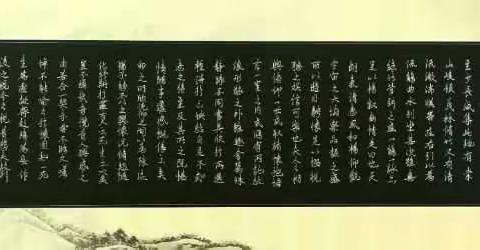 至少長咸集此地有崇
山峻領茂林脩竹又有清
流激湍暎帶左右引以為
流觴曲水列坐其次雖無
絲竹管弦之盛一觴一詠亦
足以暢叙幽情是日也天
朗氣清惠風和暢仰觀
宇宙之大俯察品類之盛
所以遊目騁懷足以極視
聽之娛信可樂也夫人之相
與俯仰一世或取諸懷抱悟
言一室之內或因寄所託放
浪形骸之外雖趣舍萬殊
靜躁不同當其欣於所遇
暫得於己怏然自足不知
老之將至及其所之既惓
情隨事遷感慨係之矣
向之所欣俛仰之間以為陳迹
猶不能不以之興懷況脩短隨
化終期於盡古人云死生亦大矣
豈不痛哉每攬昔人興感之
由若合一契未嘗不臨文嗟
悼不能喻之於懷固知一死
生為虛誕齊彭殤為妄作
後之視今亦由今之視昔悲夫